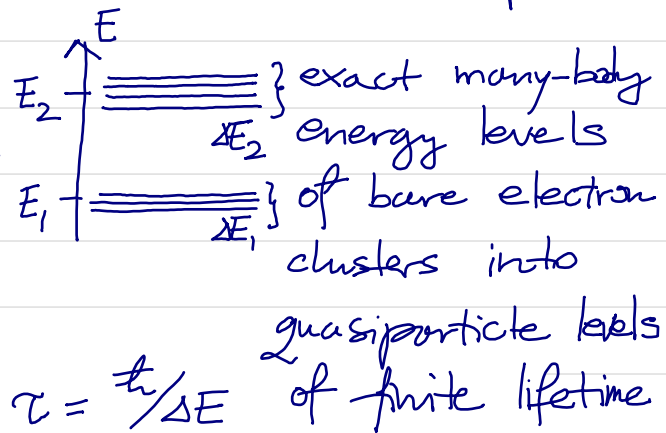 E
E₂ } exact many-body
ΔE₂ energy levels
E₁ } of bare electron
ΔE₁
clusters into
quasiparticle levels
τ = ħ/ΔE of finite lifetime